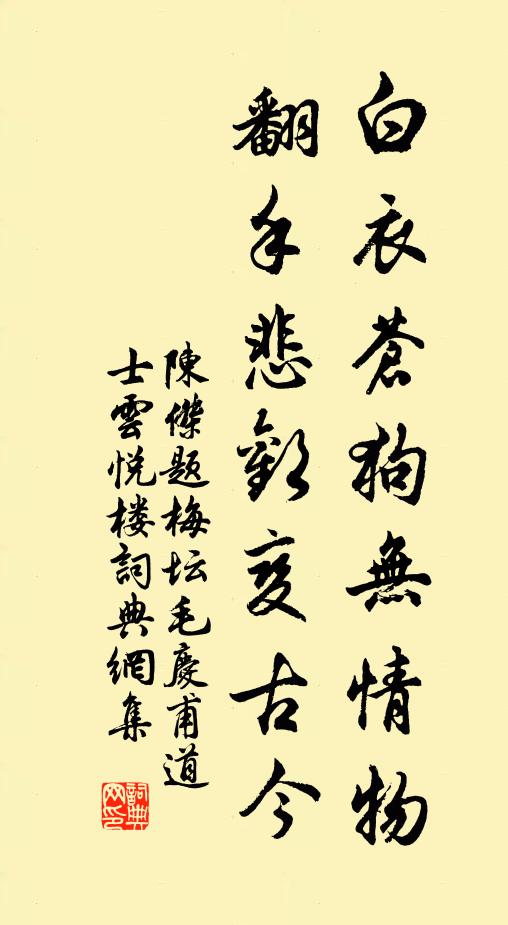 白衣蒼狗無情物
翻手悲歡變古今
陳傑題梅坛毛慶甫道
士雲悦楼詞典網集
詞典网印